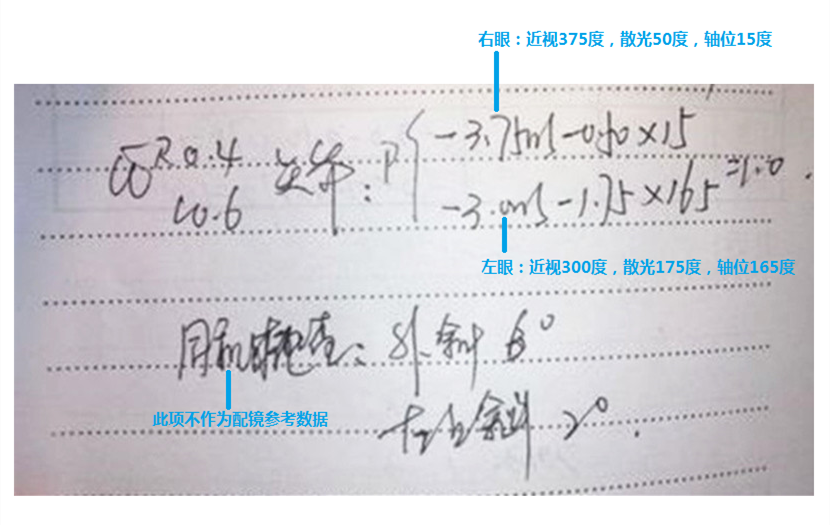 右眼：近视375度，散光50度，轴位15度
R 0.4
-3.75DS -0.50×15
L 0.6
-3.0DS -1.75×165 =1.0
左眼：近视300度，散光175度，轴位165度
同机检查：外斜 6°
此项不作为配镜参考数据
斜 2°